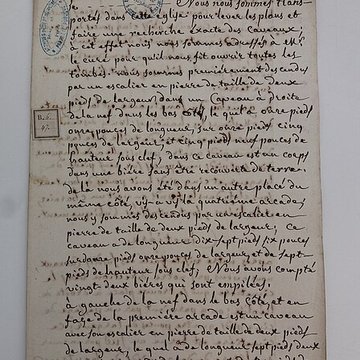 Nous nous sommes trans-
portés dans cette église pour lever les plans et
faire une recherche exacte des caveaux;
à cet effet nous nous sommes adressés à Mr.
le curé pour qu'il nous fit ouvrir toutes les
tombes. nous sommes premièrement descendus
par un escalier en pierre de taille de deux
pieds de largeur, dans un caveau à droite
de la nef dans les bas côté, le quel à onze pieds
onze pouces de longueur, sur onze pieds cinq
pouces de largeur, et cinq pieds neuf pouces de
hauteur sous clef; dans ce caveau est un corps
dans une bière sans être recouverte de terre.
de là nous avons été dans un autre placé du
même côté, vis-à-vis la quatrième arcade,
nous y sommes descendus par un escalier en
pierre de taille de deux pieds de largeur; ce
caveau a de longueur dix-sept pieds six pouces
sur douze pieds onze pouces de largeur, et de sept
pieds de hauteur sous clef, Nous avons compté
vingt deux bières qui sont empilées.
à gauche de la nef dans le bas côté, et en
face de la première arcade est un caveau
avec son escalier en pierre de taille de deux pieds
de largeur, le quel a de longueur sept pieds deux